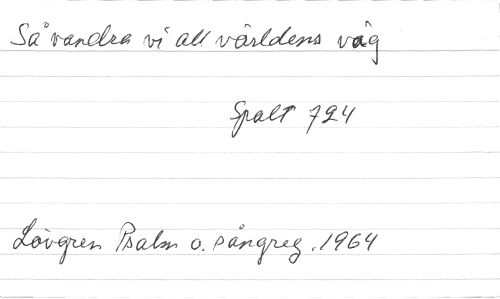 Så vandra vi all världens väg
Spalt 724
Lövgren Psalm o. sångreg. 1964